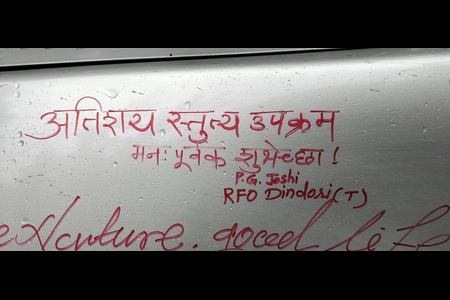 अतिशय स्तुत्य उपक्रम
मनःपूर्वक शुभेच्छा !
P.G. Joshi
RFO Dindori(T)
good life